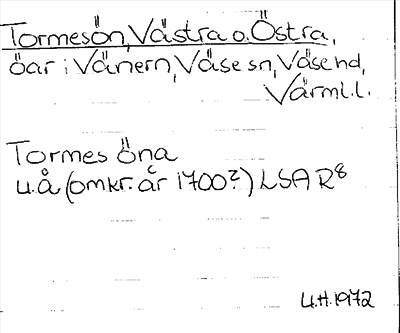 Tormesön, Västra o. Östra,
öar i Vänern, Väse sn, Väse hd,
Värml. l.
Tormes öna
u.å (omkr. år 1700?) LSA R8
U.H. 1972